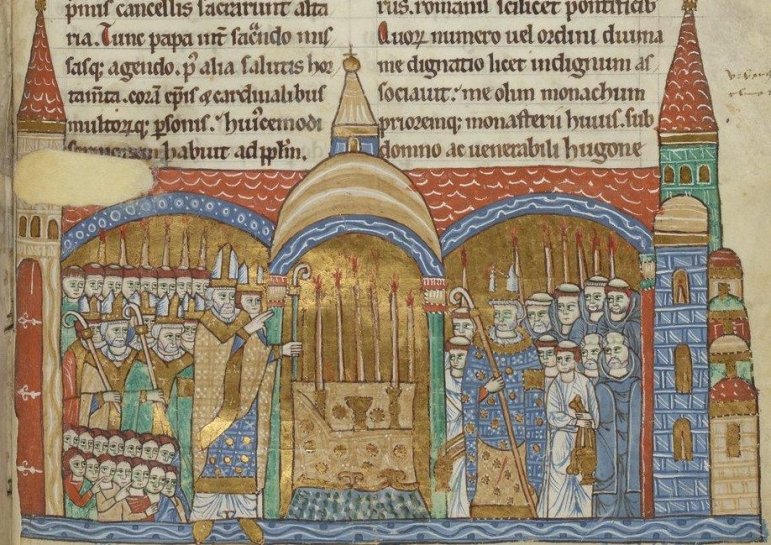 pmis cancellis sacrarunt alta
ria. Tunc papa int̄ sac̄ndo mis
sasq; agendo. p̄ alia salutis hor
tam̄ta. corā ep̄is & cardinalibus
multorq; ꝑsonis. hui᷒cemodi
habuit ad pplm̄.
rus. romanis scilicet pontificib᷒
Quoꝝ numero vel ordini diuina
me dignatio licet indignum as
sociauit. me olim monachum
prioremq; monasterii huius. sub
domno ac uenerabili hugone